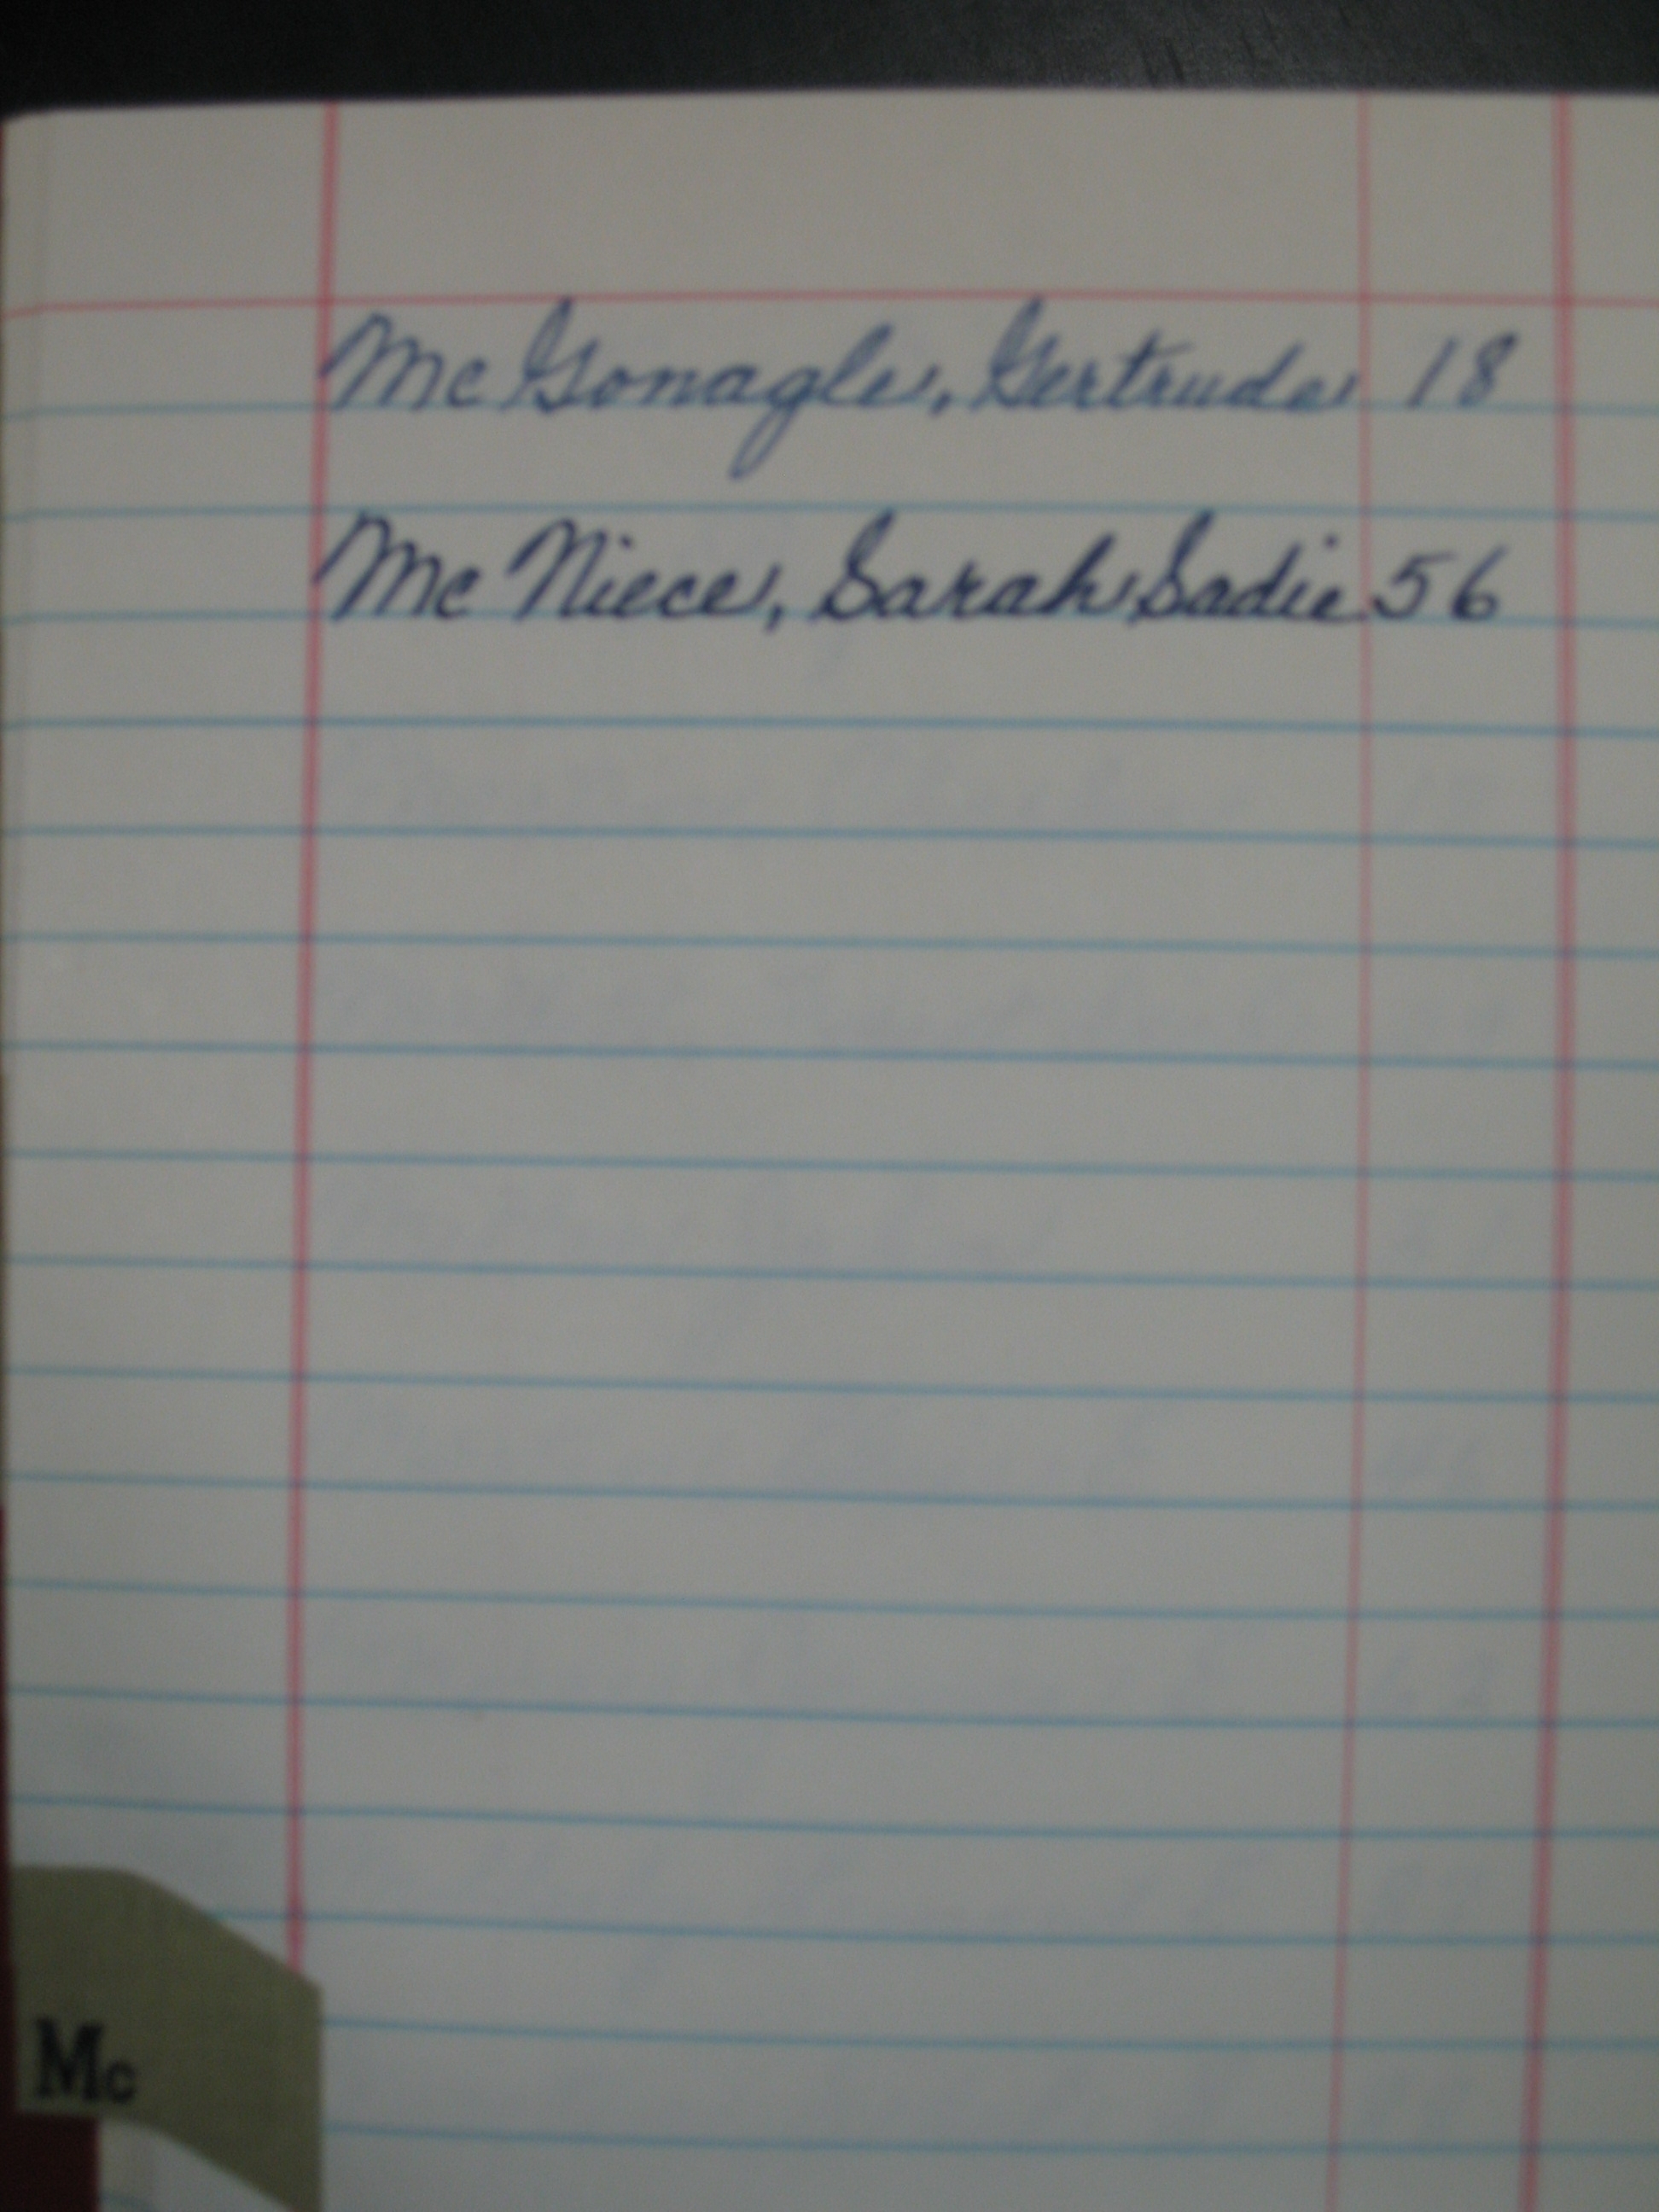 Mc Gonagle, Gertrude 18
Mc Niece, Sarah Sadie 56
Mc